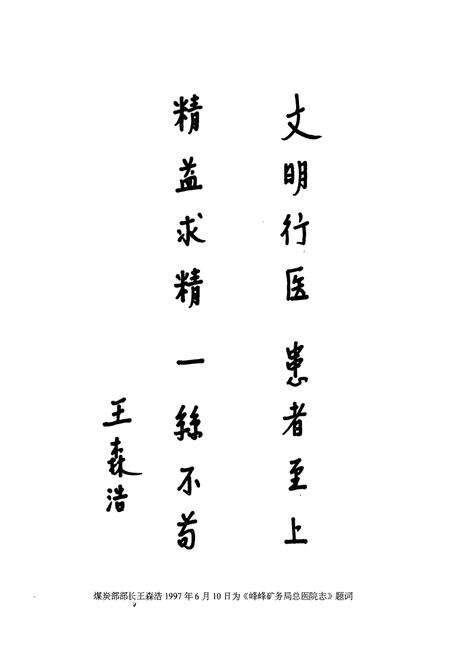 文明行医 患者至上
精益求精 一丝不苟
王森浩
煤炭部部长王森浩1997年6月10日为《峰峰矿务局总医院志》题词